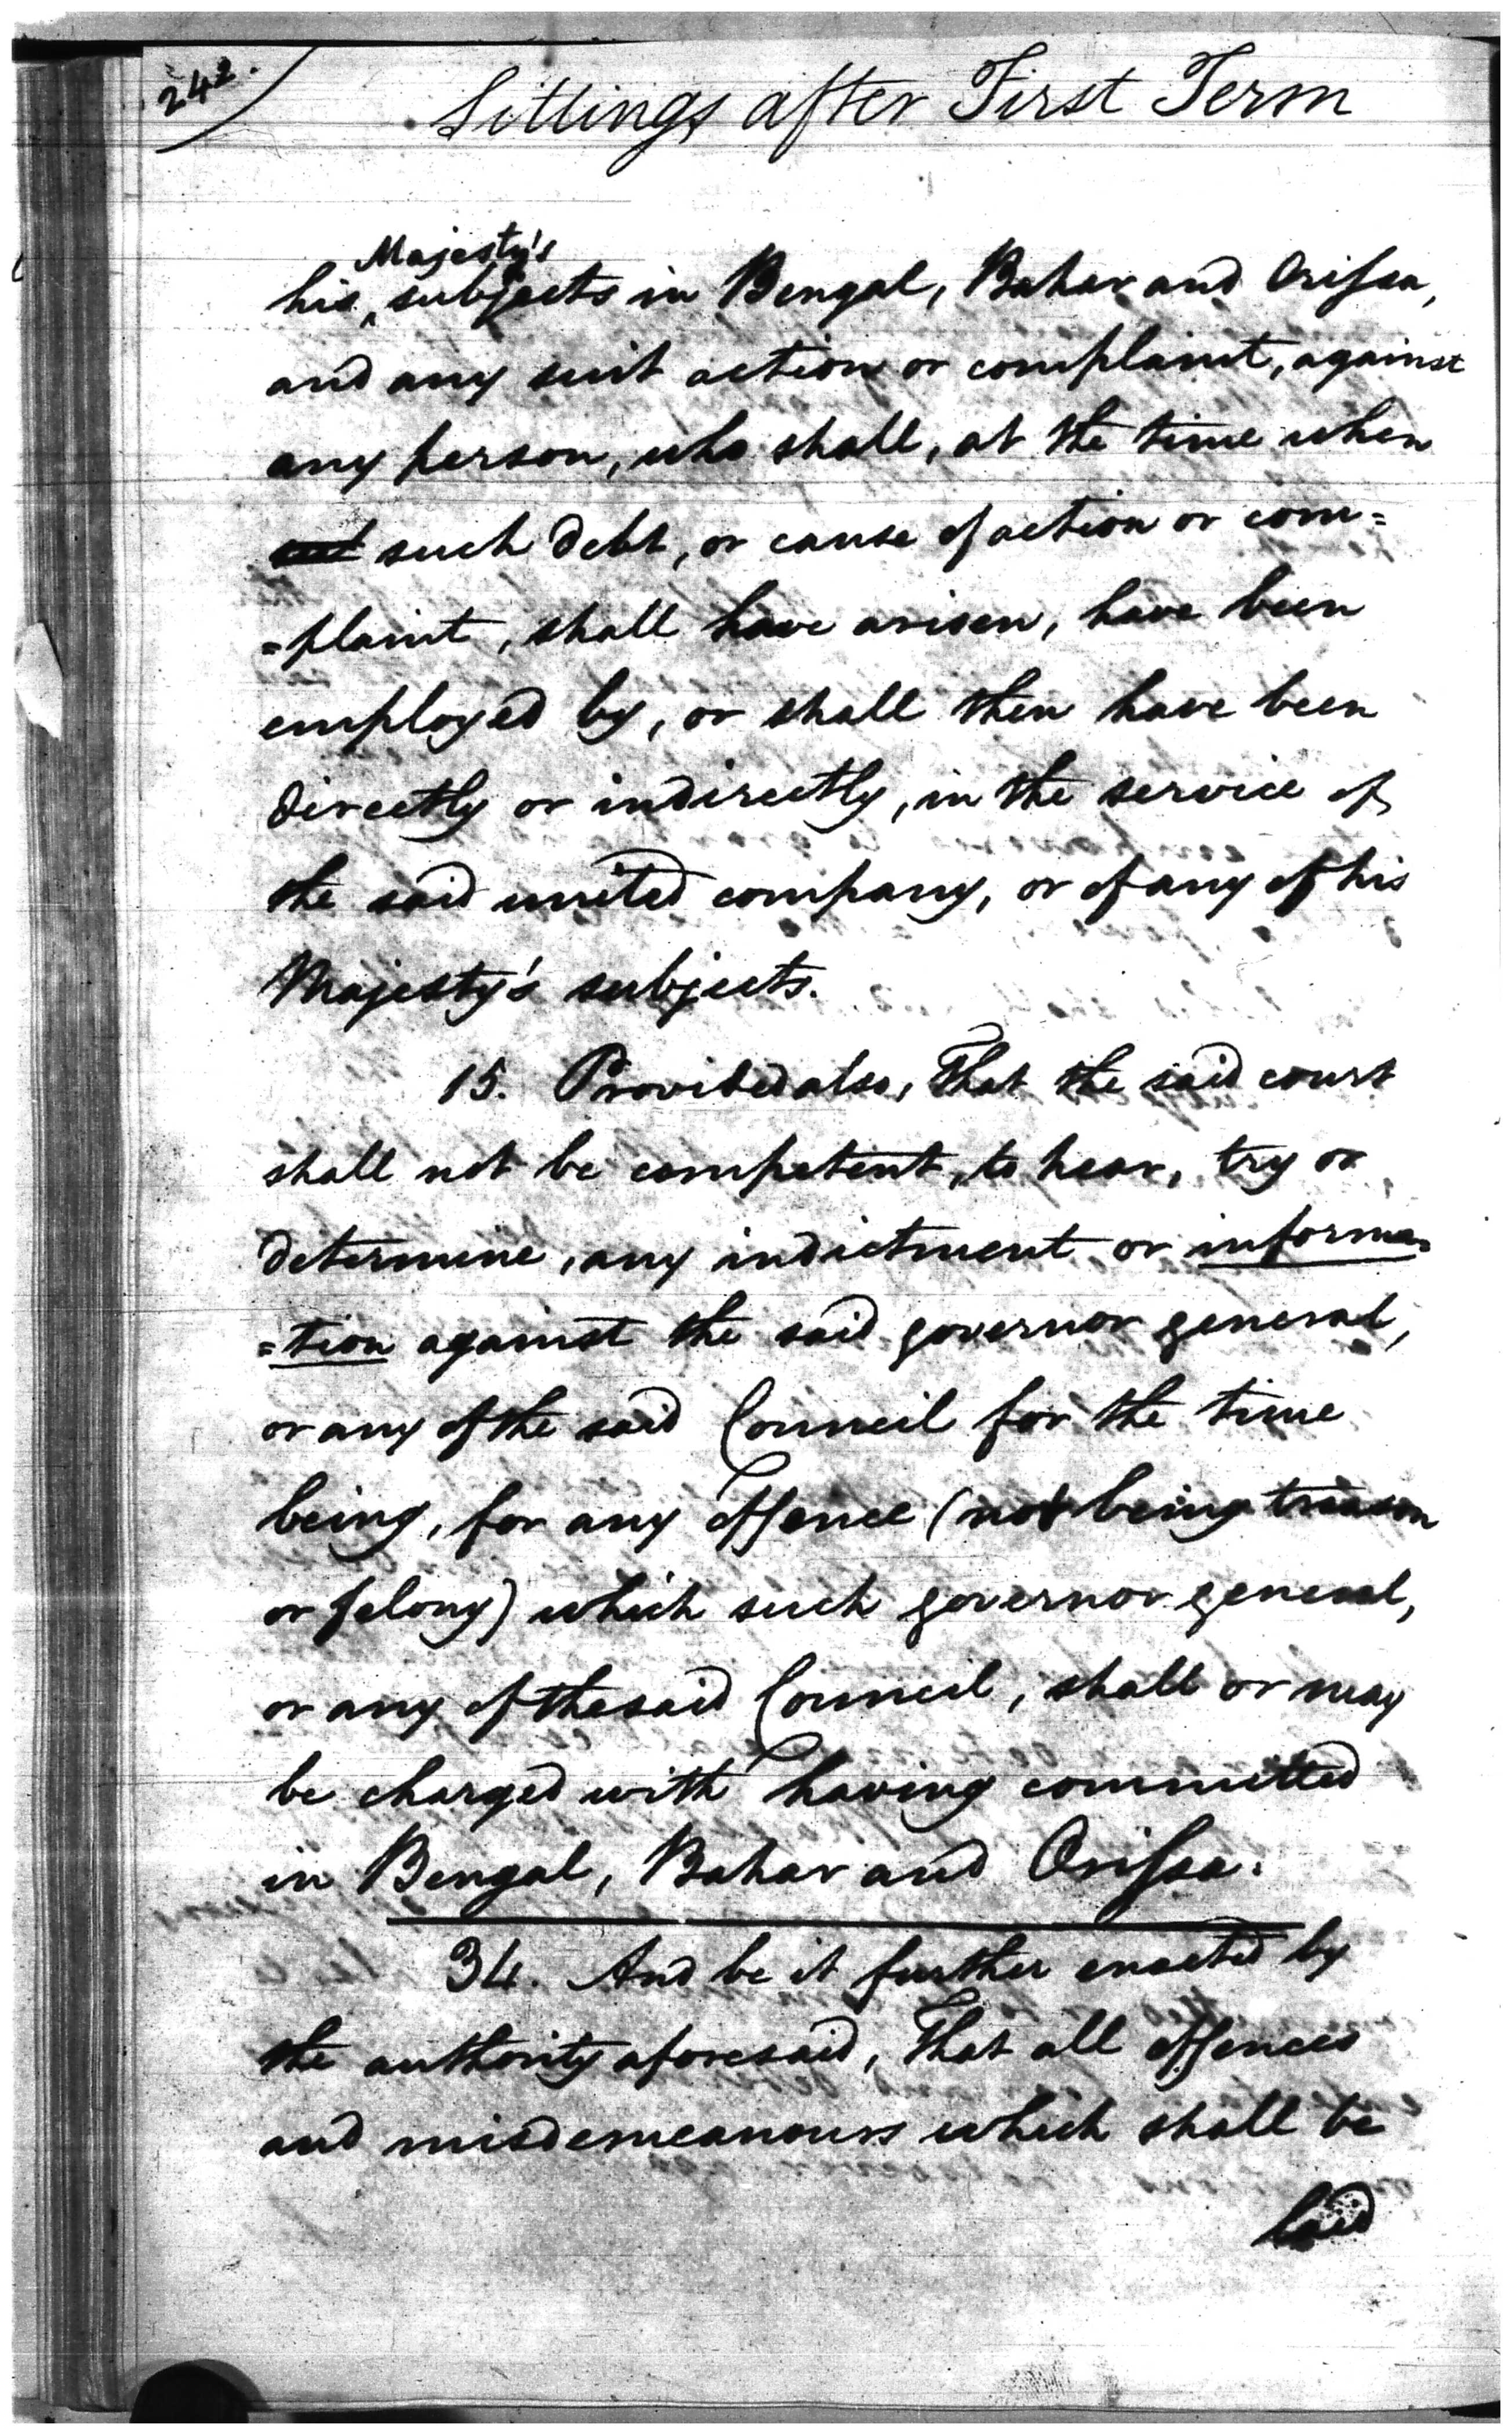 242.
Sittings after First Term
Majesty's
his, subjects in Bengal, Bahar and Orissa,
and any suit action or complaint, against
any person, who shall, at the time when
such debt, or cause of action or com=
=plaint, shall have arisen, have been
employed by, or shall then have been
directly or indirectly, in the service of
the said united company, or of any of his
Majesty's subjects.
15. Provided also, That the said court
shall not be competent, to hear, try or
determine, any indictment or informa=
=tion against the said governor general,
or any of the said Council for the time
being, for any offence (not being treason
or felony) which such governor general,
or any of the said Council, shall or may
be charged with having committed
in Bengal, Bahar and Orissa.
34. And be it further enacted by
the authority aforesaid, That all offences
and misdemeanours which shall be
laid